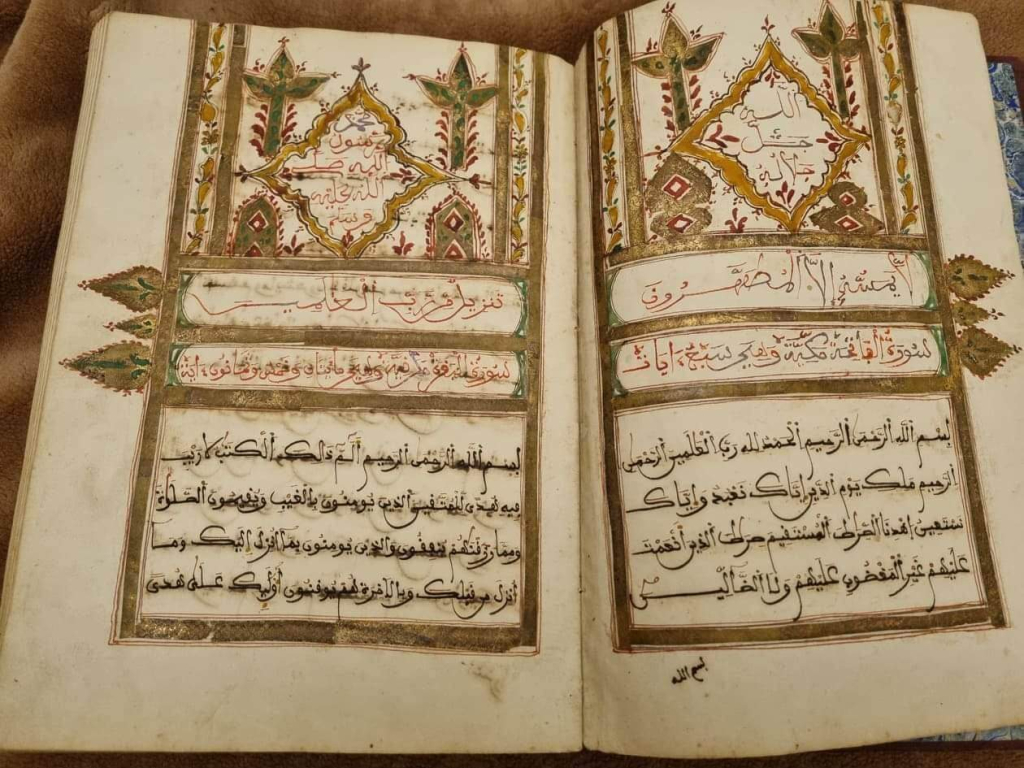 الله
جل
جلاله
لا يمسه إلا المطهرون
سورة الفاتحة مكية وهي سبع ءايات
بسم الله الرحمن الرحيم الحمد لله رب العلمين الرحمن
الرحيم ملك يوم الدين إياك نعبد وإياك
نستعين اهدنا الصرط المستقيم صرط الذين أنعمت
عليهم غير المغضوب عليهم ولا الضالين
بسم الله
محمد
رسول
الله صلى
الله عليه
وسلم
تنزيل من رب العلمين
سورة البقرة مدنية وهي مايتان وخمس وثمانون ءاية
بسم الله الرحمن الرحيم الم ذلك الكتب لا ريب
فيه هدى للمتقين الذين يومنون بالغيب ويقيمون الصلوة
ومما رزقنهم ينفقون والذين يومنون بما أنزل إليك وما
أنزل من قبلك وبالاخرة هم يوقنون أولئك على هدى